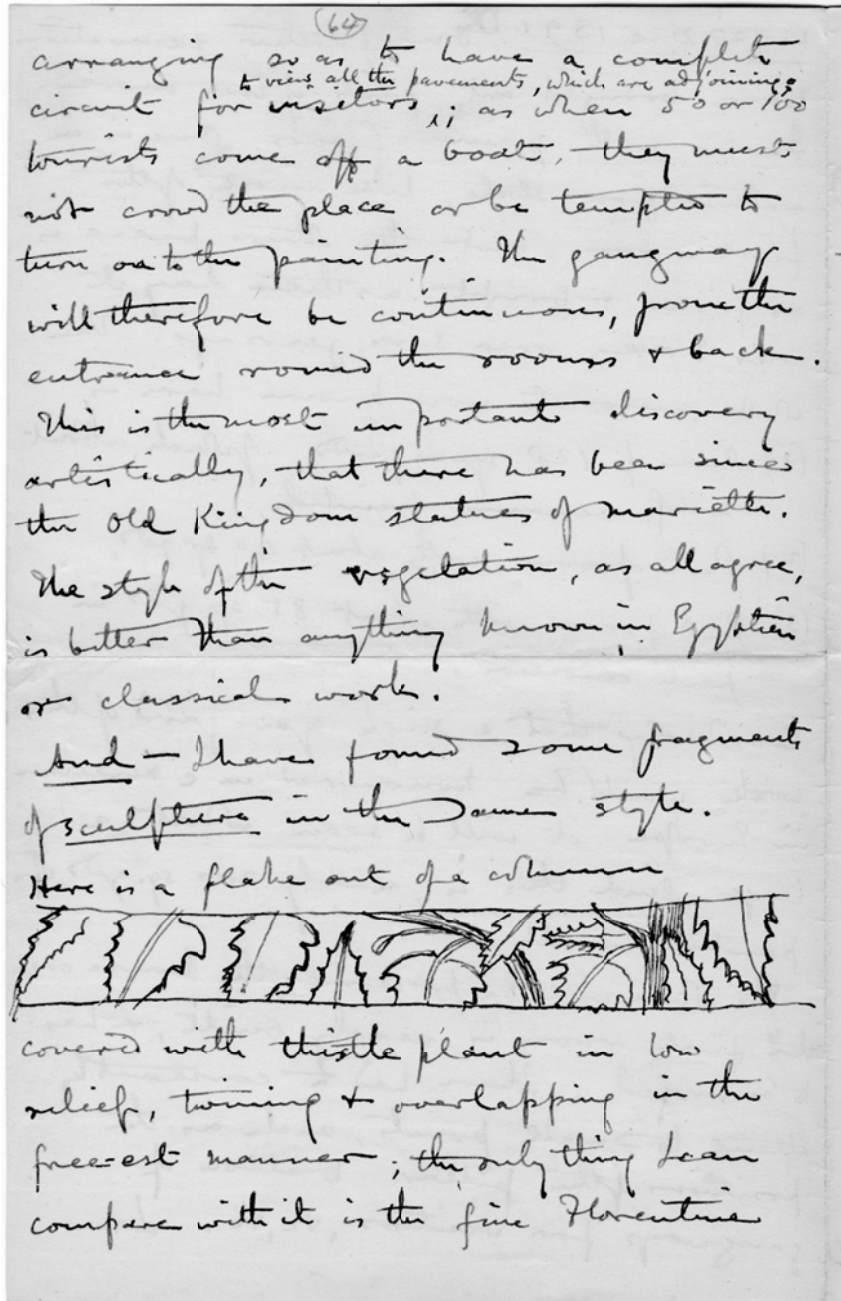 64
arranging so as to have a complete
to view all the pavements, which are adjoining
circuit for visitors ; as when 50 or 100
tourists come off a boat, they must
not crowd the place or be tempted to
turn on to the painting. The gangway
will therefore be continuous, from the
entrance round the rooms & back.
This is the most important discovery
artistically, that there has been since
the Old Kingdom statues of Mariette.
The style of the vegetation, as all agree,
is better than anything known in Egyptian
or classical work.
And — I have found some fragments
of sculpture in the same style.
Here is a flake out of a column
covered with thistle plant in low
relief, twining & overlapping in the
free-est manner ; the only thing I can
compare with it is the fine Florentine